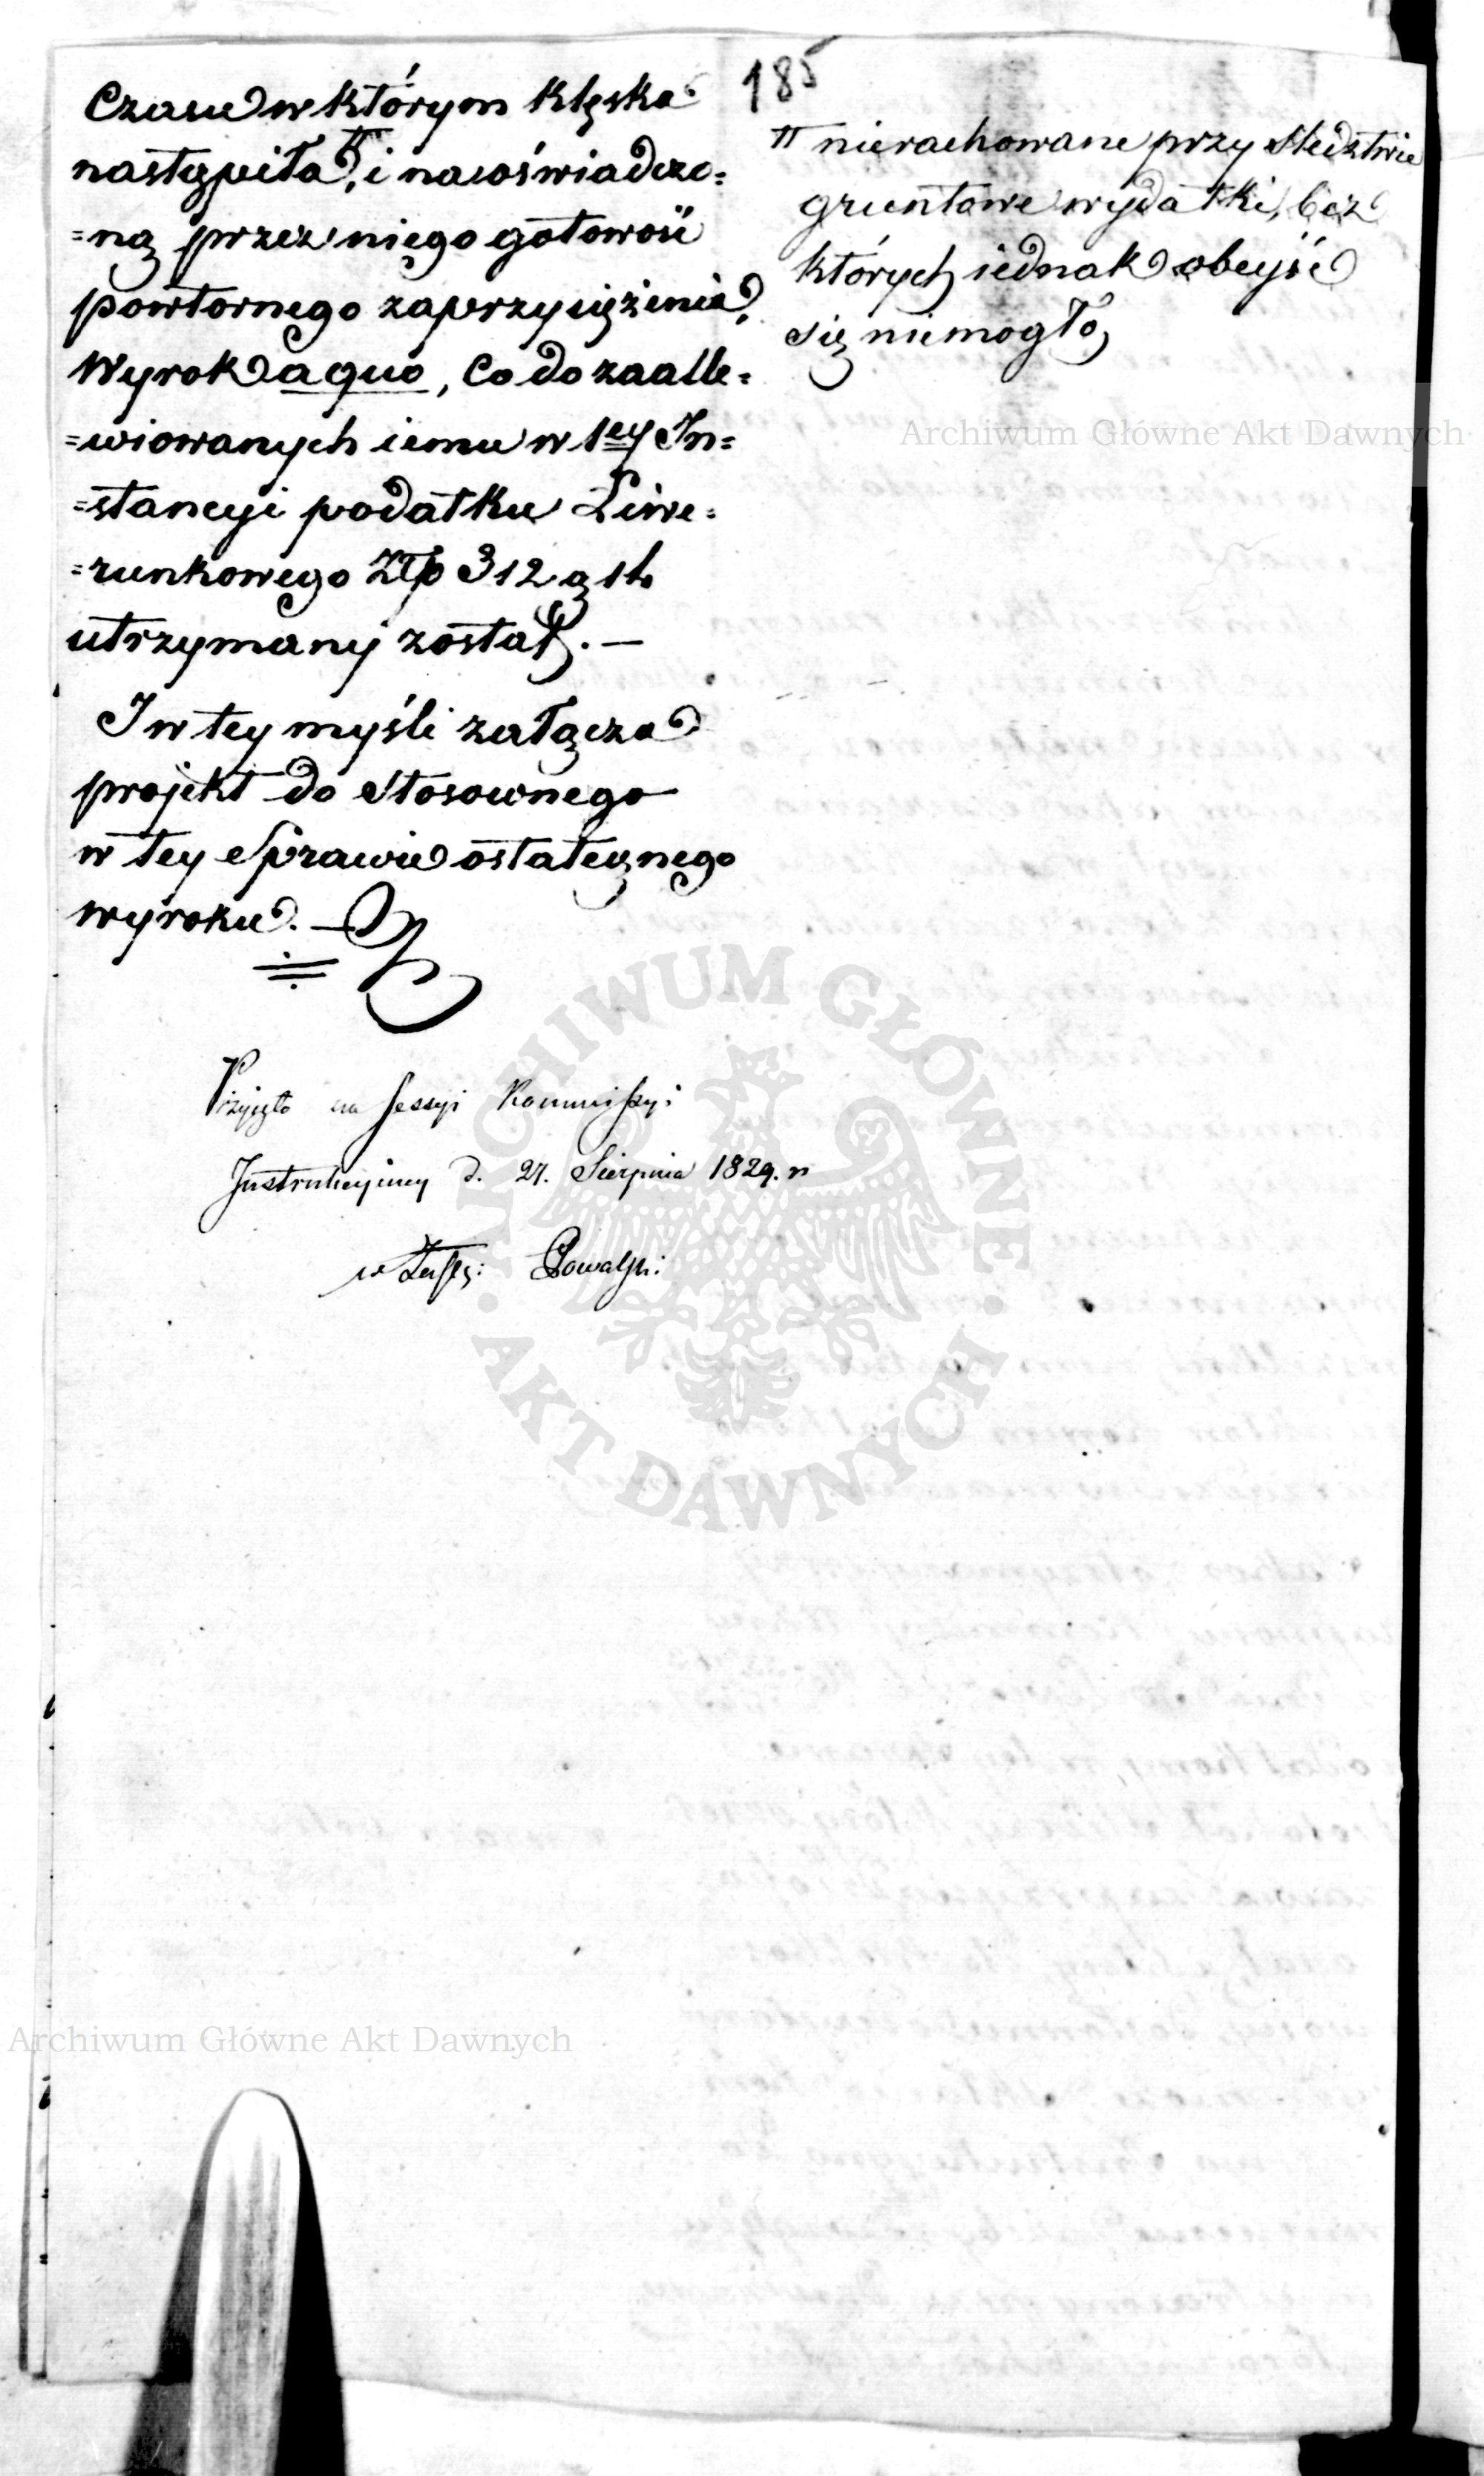 185
Czasu w którym klęska
nastąpiła, # i na oświadczo=
=ną przez niego gotowość
powtornego zaprzysiężenia,
Wyrok a quo, co do zaalle=
=wiowanych iemu w 1ey In=
=stancyi podatku Liwe=
=runkowego Złp 312 g 14
utrzymany został. —
I w tey myśli załącza
projekt do stosownego
w tey Sprawie ostatecznego
wyroku. —
# nierachowane przy Śledztwie
gruntowe wydatki, bez
których iednak obeyść
się niemogło,
Przyjęto na Sessyi Kommissyi
Instrukcyiney d. 27. Sierpnia 1829. r
w Zastę: Kowalski
Archiwum Główne Akt Dawnych
ARCHIWUM GŁÓWNE
AKT DAWNYCH
Archiwum Główne Akt Dawnych